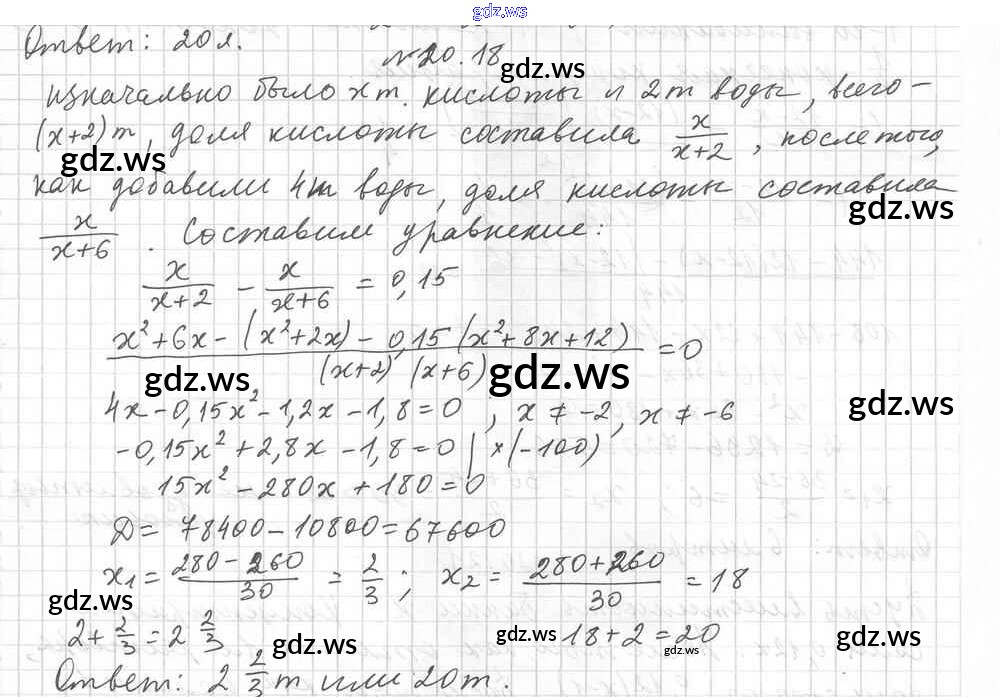 gdz.ws
Ответ: 20 л.
№20.18
gdz.ws
изначально было x т. кислоты и 2 т воды, всего –
(x+2) т, доля кислоты составила x/(x+2), после того,
gdz.ws
как добавили 4 т воды, доля кислоты составила
gdz.ws
x/(x+6). Составим уравнение:
x/(x+2) - x/(x+6) = 0,15
(x²+6x-(x²+2x)-0,15(x²+8x+12))/((x+2)(x+6)) = 0
gdz.ws gdz.ws
4x-0,15x²-1,2x-1,8=0, x≠-2, x≠-6
gdz.ws
-0,15x²+2,8x-1,8=0 | ×(-100)
15x²-280x+180=0
Д= 78400-10800=67600
x₁= (280-260)/30 = 2/3; x₂= (280+260)/30 =18
gdz.ws
2+2/3=2 2/3 18+2=20
gdz.ws gdz.ws gdz.ws gdz.ws
Ответ: 2 2/3 т или 20 т.